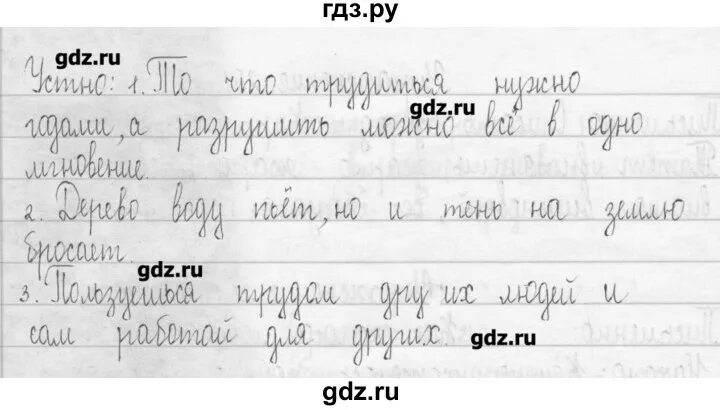 гдз.ру
gdz.ru
Устно: 1. То что трудиться нужно
gdz.ru
годами, а разрушить можно всё в одно
мгновение.
2. Дерево воду пьёт, но и тень на землю
бросает.
gdz.ru
3. Пользуешься трудом других людей и
сам работай для других.
gdz.ru
gdz.ru